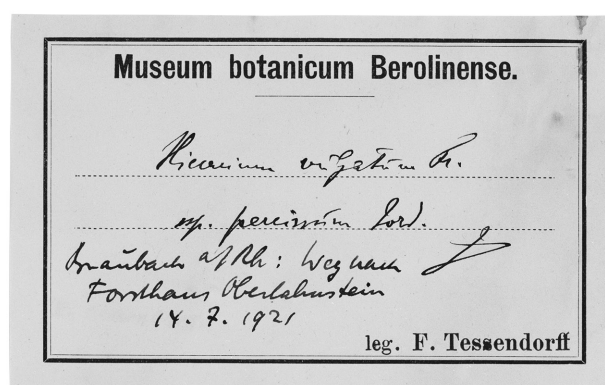 Museum botanicum Berolinense.
Hieracium vulgatum Fr.
ssp. percissum Jord.
Braubach a/Rh: Weg nach
Forsthaus Oberlahnstein
14. 7. 1921
leg. F. Tessendorff